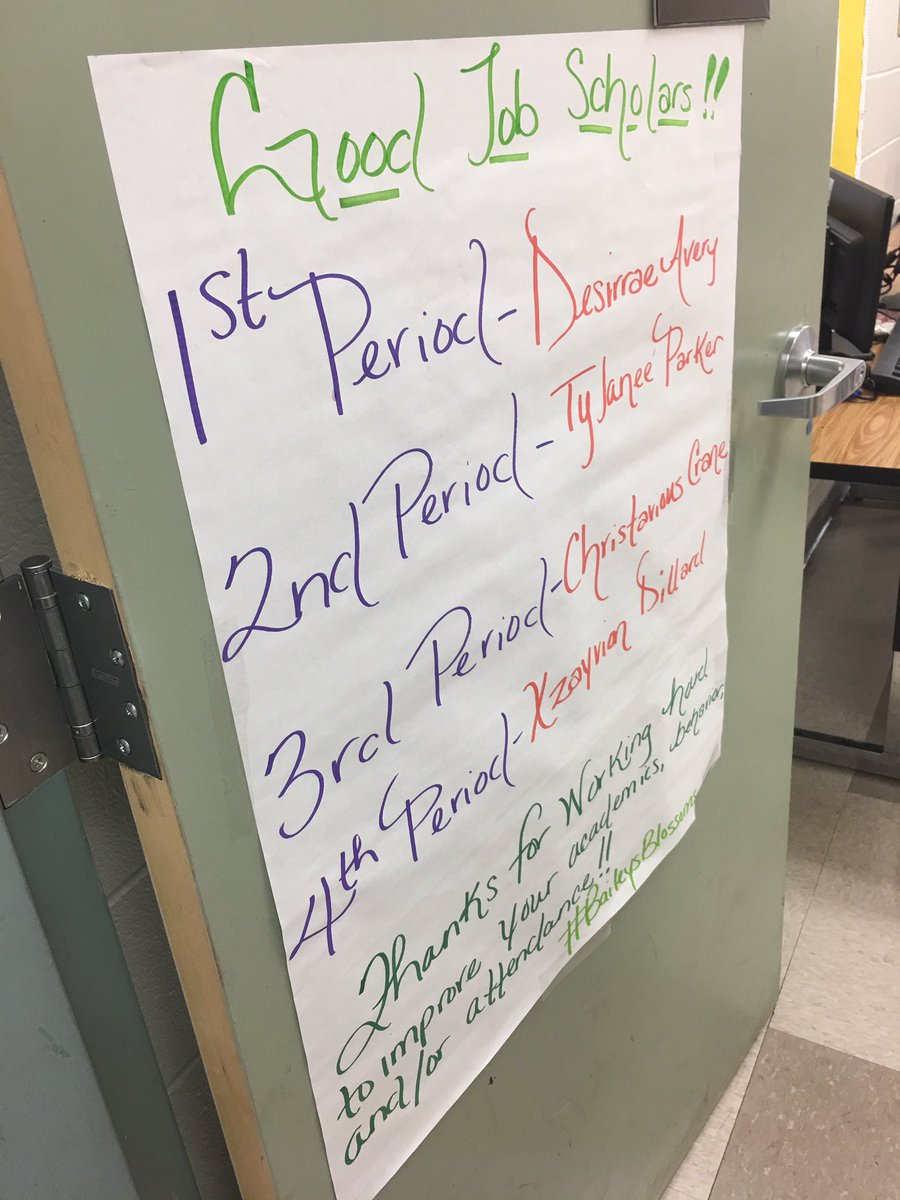 Good Job Scholars!!
1st Period- Desirrae Avery
2nd Period- TyJanee Parker
3rd Period- Christavious Crane
4th Period- Xzayvion Dillard
Thanks for Working hard
to improve your academics, behavior,
and/or attendance!!
#BaileysBlossoms